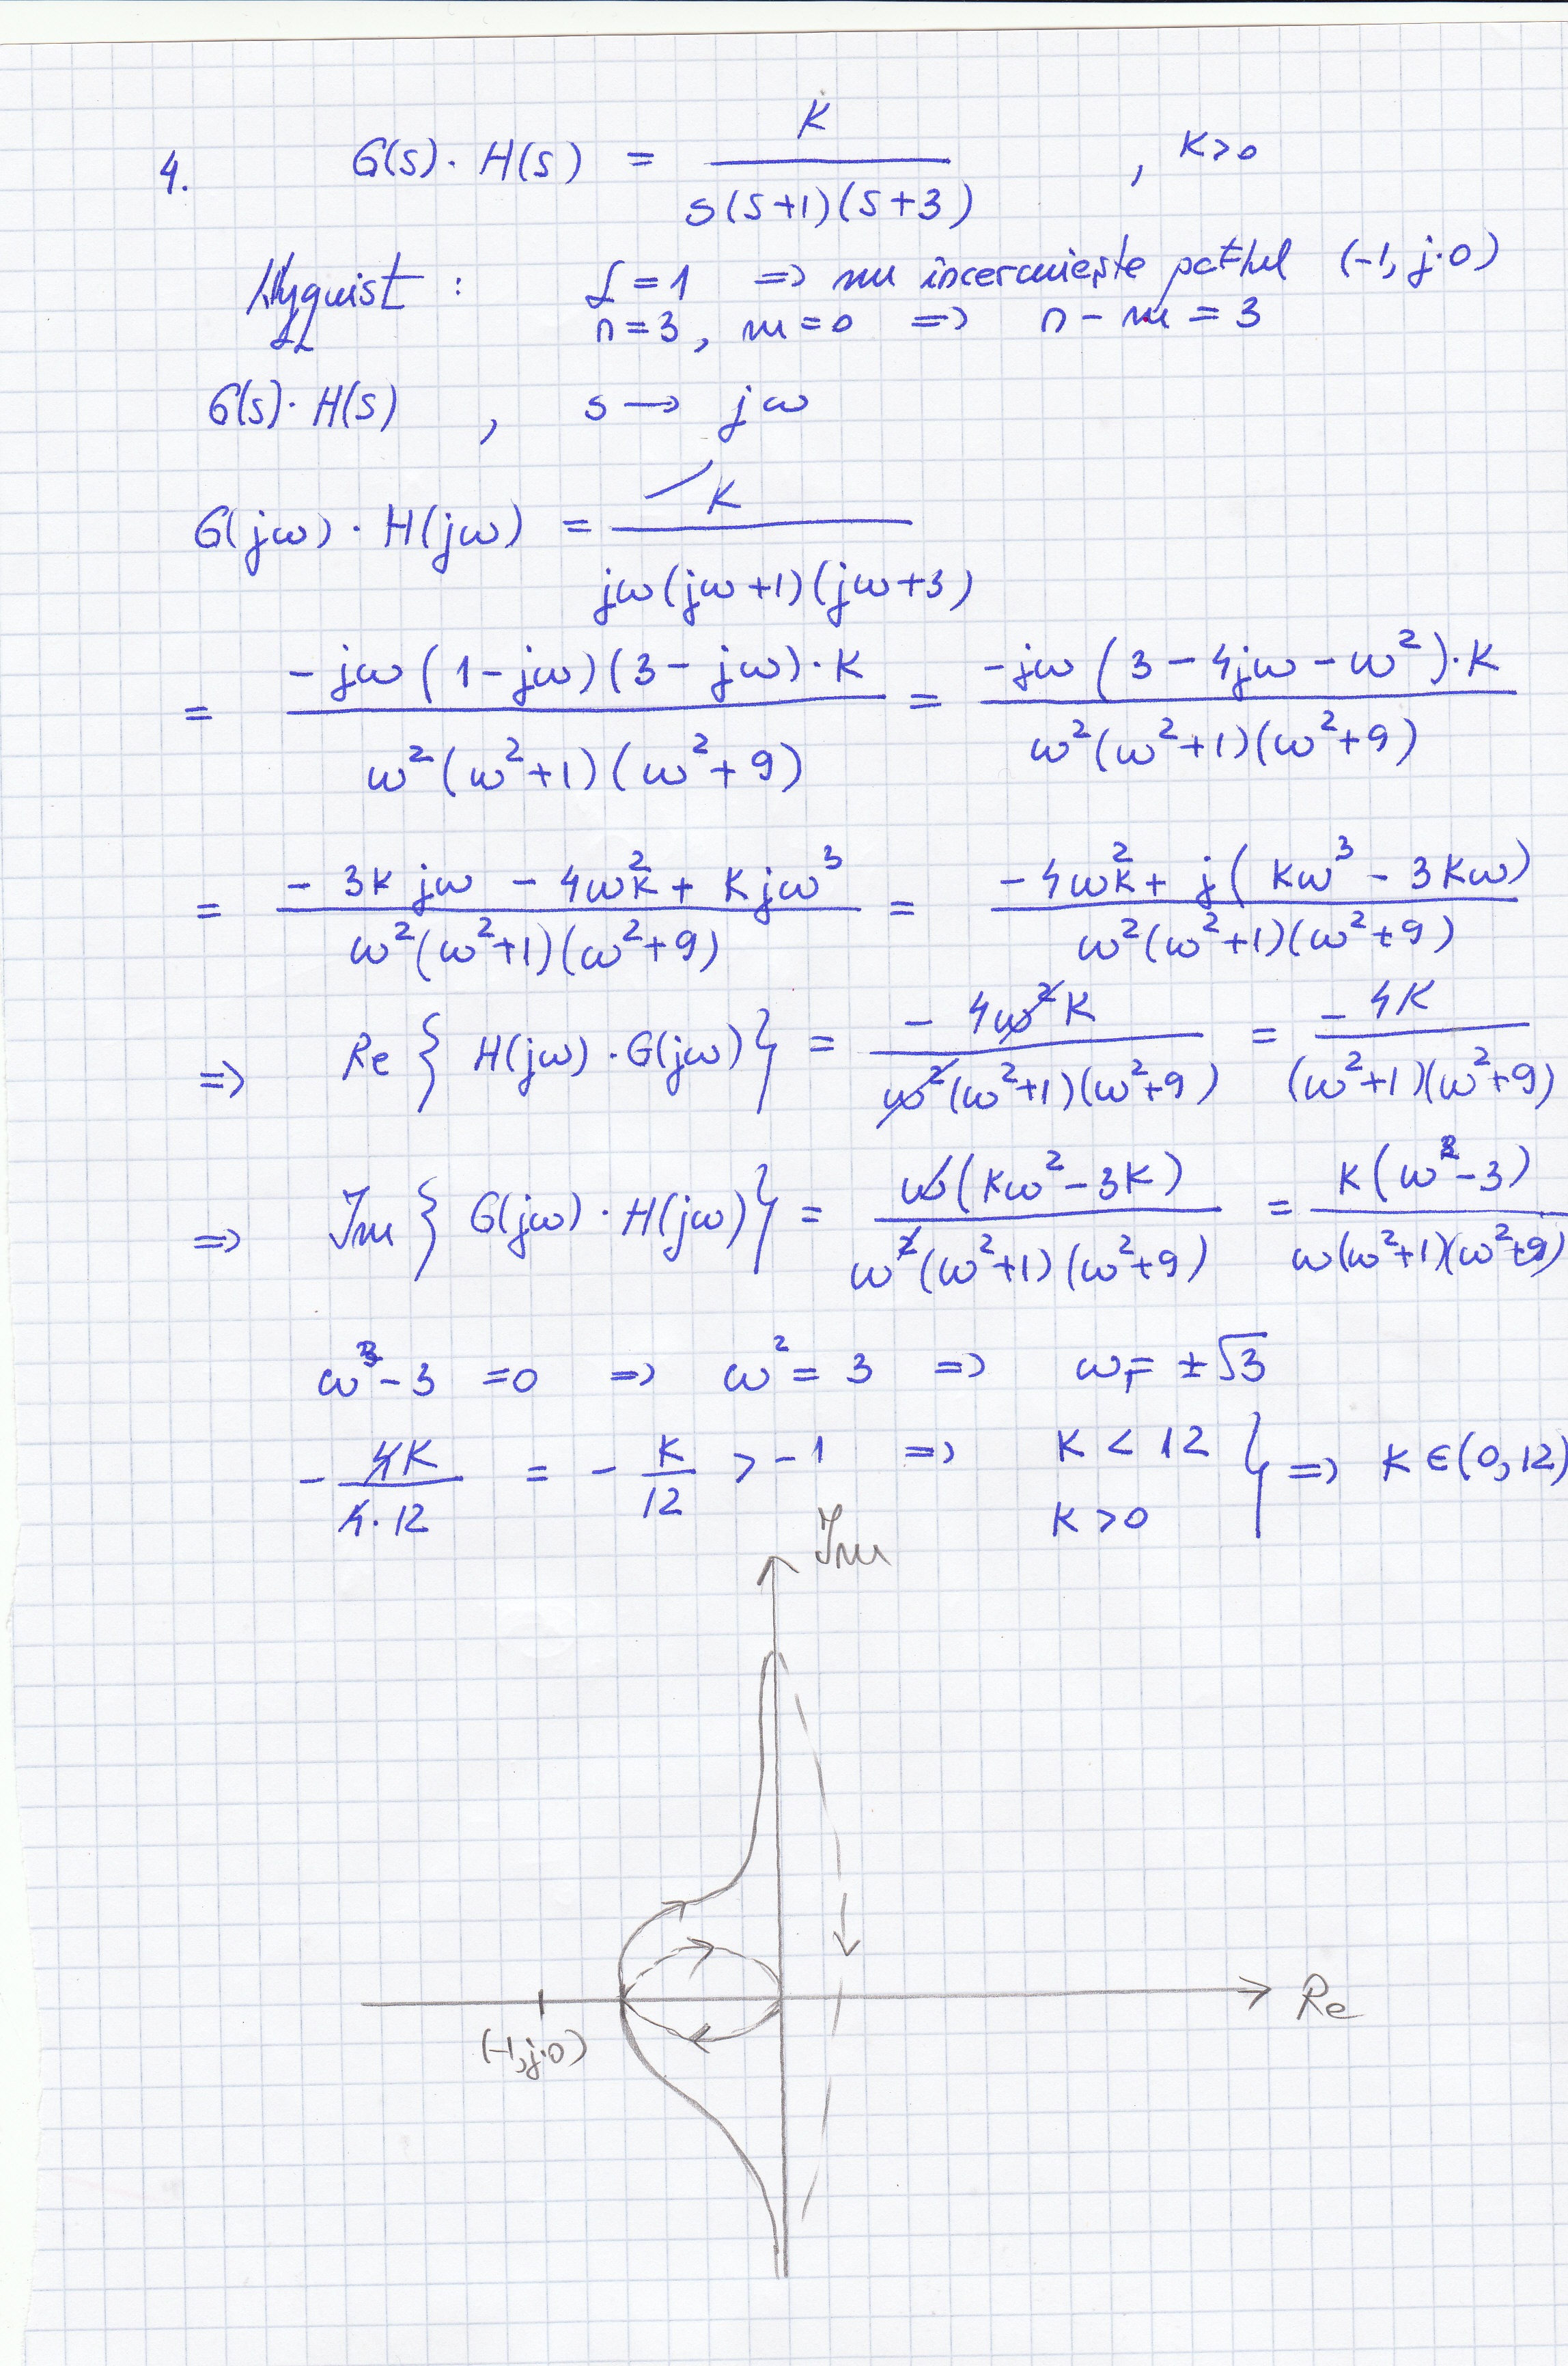 4. G(s)·H(s) = K / s(s+1)(s+3) , K>0
Nyquist : ℒ=1 => nu încercuiește pctul (-1, j·0)
n=3, m=0 => n-m=3
G(s)·H(s) , s → jω
G(jω)·H(jω) = K / jω(jω+1)(jω+3)
= -jω(1-jω)(3-jω)·K / ω²(ω²+1)(ω²+9) = -jω(3-4jω-ω²)·K / ω²(ω²+1)(ω²+9)
= -3Kjω - 4ω²K + Kjω³ / ω²(ω²+1)(ω²+9) = -4ω²K + j(Kω³-3Kω) / ω²(ω²+1)(ω²+9)
=> Re{H(jω)·G(jω)} = -4ω²K / ω²(ω²+1)(ω²+9) = -4K / (ω²+1)(ω²+9)
=> Im{G(jω)·H(jω)} = ω(Kω²-3K) / ω²(ω²+1)(ω²+9) = K(ω²-3) / ω(ω²+1)(ω²+9)
ω²-3 =0 => ω² = 3 => ω₁= ±√3
- 4K / 4·12 = - K / 12 > -1 => K < 12 } => K ∈(0,12)
K >0
Im
Re
(-1, j·0)